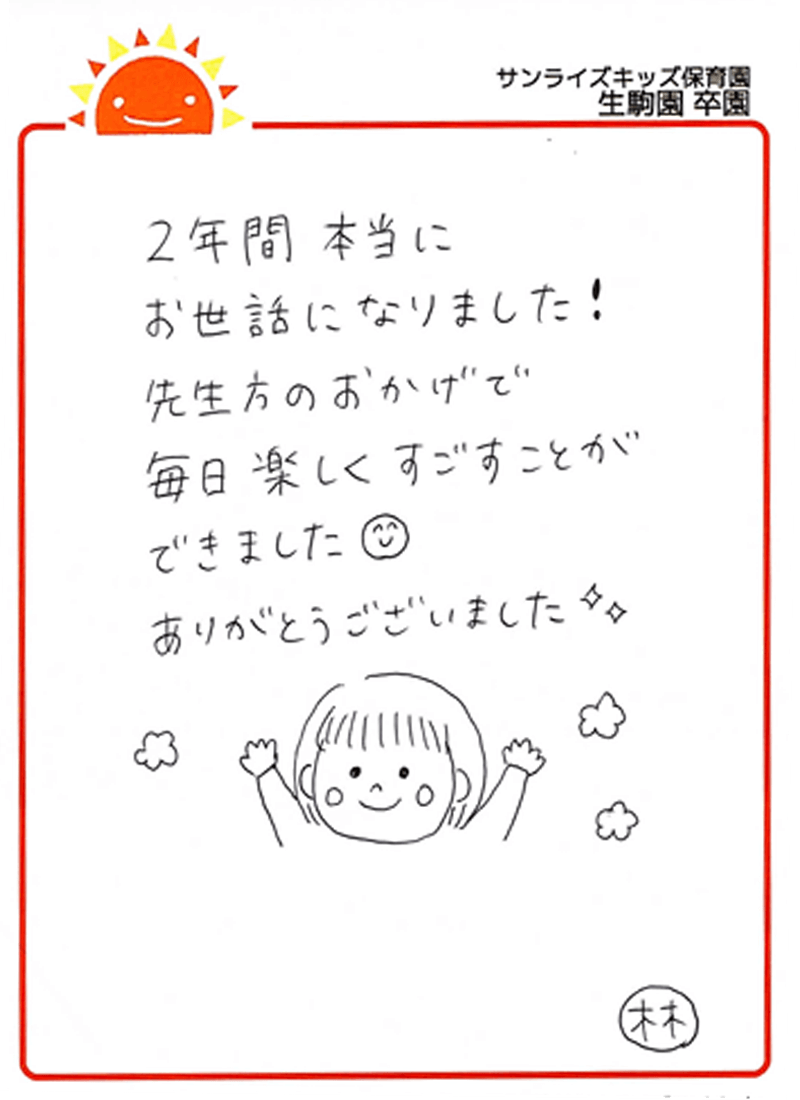 サンライズキッズ保育園
生駒園 卒園
2年間 本当に
お世話になりました!
先生方のおかげで
毎日 楽しく すごすことが
できました
ありがとうございました
林